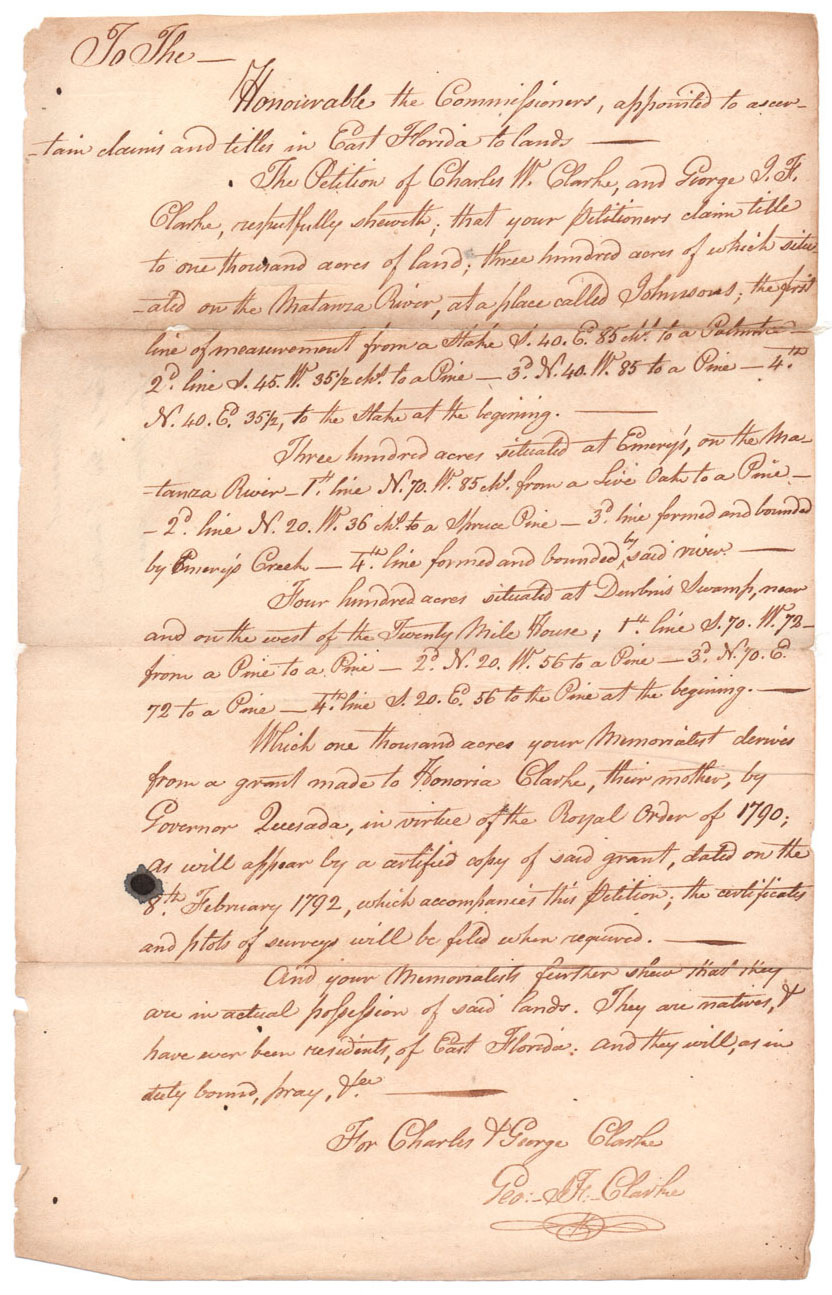 To The —
Honourable the Commissioners, appointed to ascer-
-tain claims and titles in East Florida to lands —
The Petition of Charles W. Clarke, and George I. F.
Clarke, respectfully sheweth; that your Petitioners claim title
to one thousand acres of land; three hundred acres of which situ-
-ated on the Matanza River, at a place called Johnsons; the first
line of measurement from a Stake S. 40. E. 85 chs. to a Palmtree —
2d. line S. 45. W. 35 1/2 chs. to a Pine — 3d. N. 40. W. 85 to a Pine — 4th.
N. 40. Ed. 35 1/2, to the Stake at the begining. —
Three hundred acres situated at Emery's, on the Ma-
-tanza River — 1st. line N. 70. W. 85 chs. from a Live Oak to a Pine —
— 2d. line N. 20. W. 36 chs. to a Spruce Pine — 3d. line formed and bounded
by Emery's Creek — 4th. line formed and bounded by said river. —
Four hundred acres situated at Durbin's Swamp, near
and on the west of the Twenty Mile House; 1st. line S. 70. W. 72 —
from a Pine to a Pine — 2d. N. 20. W. 56 to a Pine — 3d. N. 70. E.
72 to a Pine — 4th. line S. 20. E. 56 to the Pine at the begining. —
Which one thousand acres your Memorialist derives
from a grant made to Honoria Clarke, their mother, by
Governor Quesada, in virtue of the Royal Order of 1790;
as will appear by a certified copy of said grant, dated on the
8th. February 1792, which accompanies this Petition; the certificates
and plots of surveys will be filed when required. —
And your Memorialists further shew that they
are in actual possession of said lands. They are natives, &
have ever been residents, of East Florida: and they will, as in
duty bound, pray, &ca. —
For Charles & George Clarke
Geo: I F. Clarke